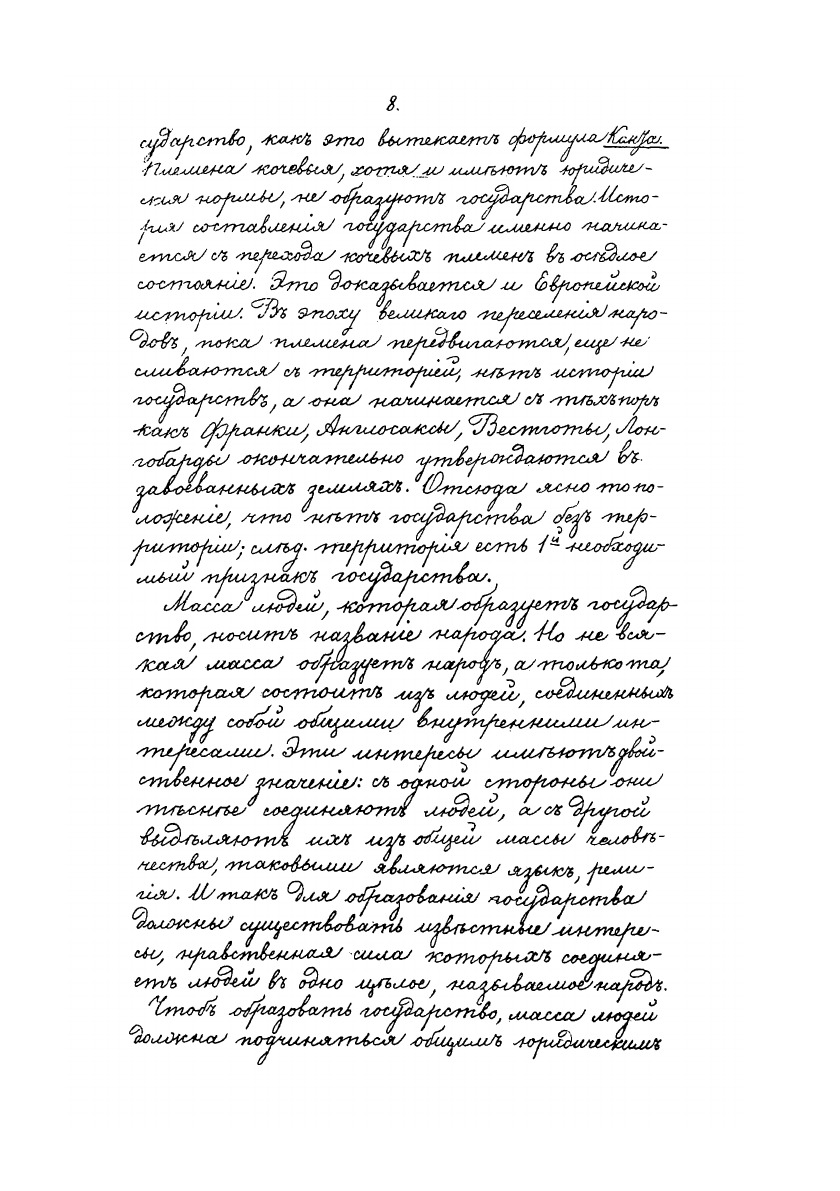 8.
сударство, какъ это вытекаетъ формула Канта.
Племена кочевыя, хотя и имѣютъ юридиче-
скія нормы, не образуютъ государства. Исто-
рія составленія государства именно начина-
ется съ перехода кочевыхъ племенъ въ осѣдлое
состояніе. Это доказывается и Европейской
исторіи. Въ эпоху великаго переселенія наро-
довъ, пока племена передвигаются, еще не
сливаются съ территоріей, нѣтъ исторіи
государствъ, а она начинается съ тѣхъ поръ
какъ Франки, Англосаксы, Вестготы, Лон-
гобарды окончательно утверждаются въ
завоеванныхъ земляхъ. Отсюда ясно то по-
ложеніе, что нѣтъ государства безъ тер-
риторіи; слѣд. территорія есть 1й необходи-
мый признакъ государства.
Масса людей, которая образуетъ государ-
ство, носитъ названіе народа. Но не вся-
кая масса образуетъ народъ, а только та,
которая состоитъ изъ людей, соединенныхъ
между собой общими внутренними ин-
тересами. Эти интересы имѣютъ двой-
ственное значеніе: съ одной стороны они
тѣснѣе соединяютъ людей, а съ другой
выдѣляютъ ихъ изъ общей массы человѣ-
чества, таковыми являются языкъ, рели-
гія. И такъ для образованія государства
должны существовать извѣстные интере-
сы, нравственная сила которыхъ соединя-
етъ людей въ одно цѣлое, называемое народъ.
Чтобъ образовать государство, масса людей
должна подчиняться общимъ юридическимъ